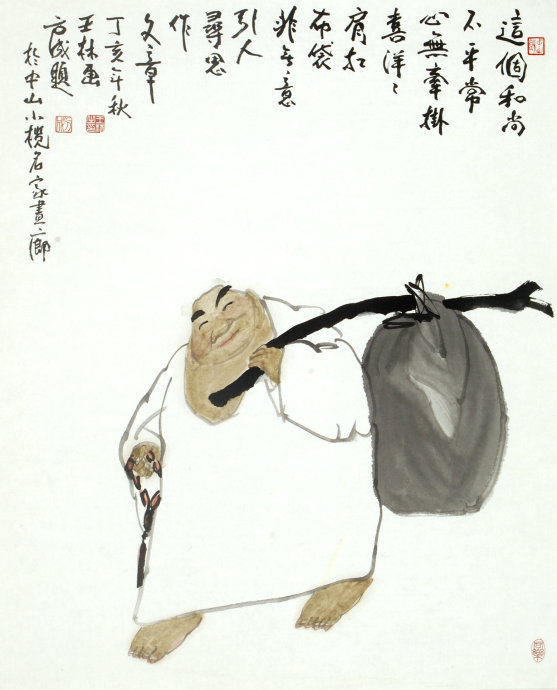 這個和尚
不平常
心無牽掛
喜洋〻
肩扛
布袋
非無意
引人
尋思
作
文章
丁亥年秋
王林画
方成題
於中山小欖名家畫廊